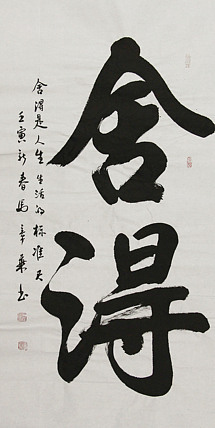 舍得
舍得是人生生活的标准天
壬寅新春马章乘书